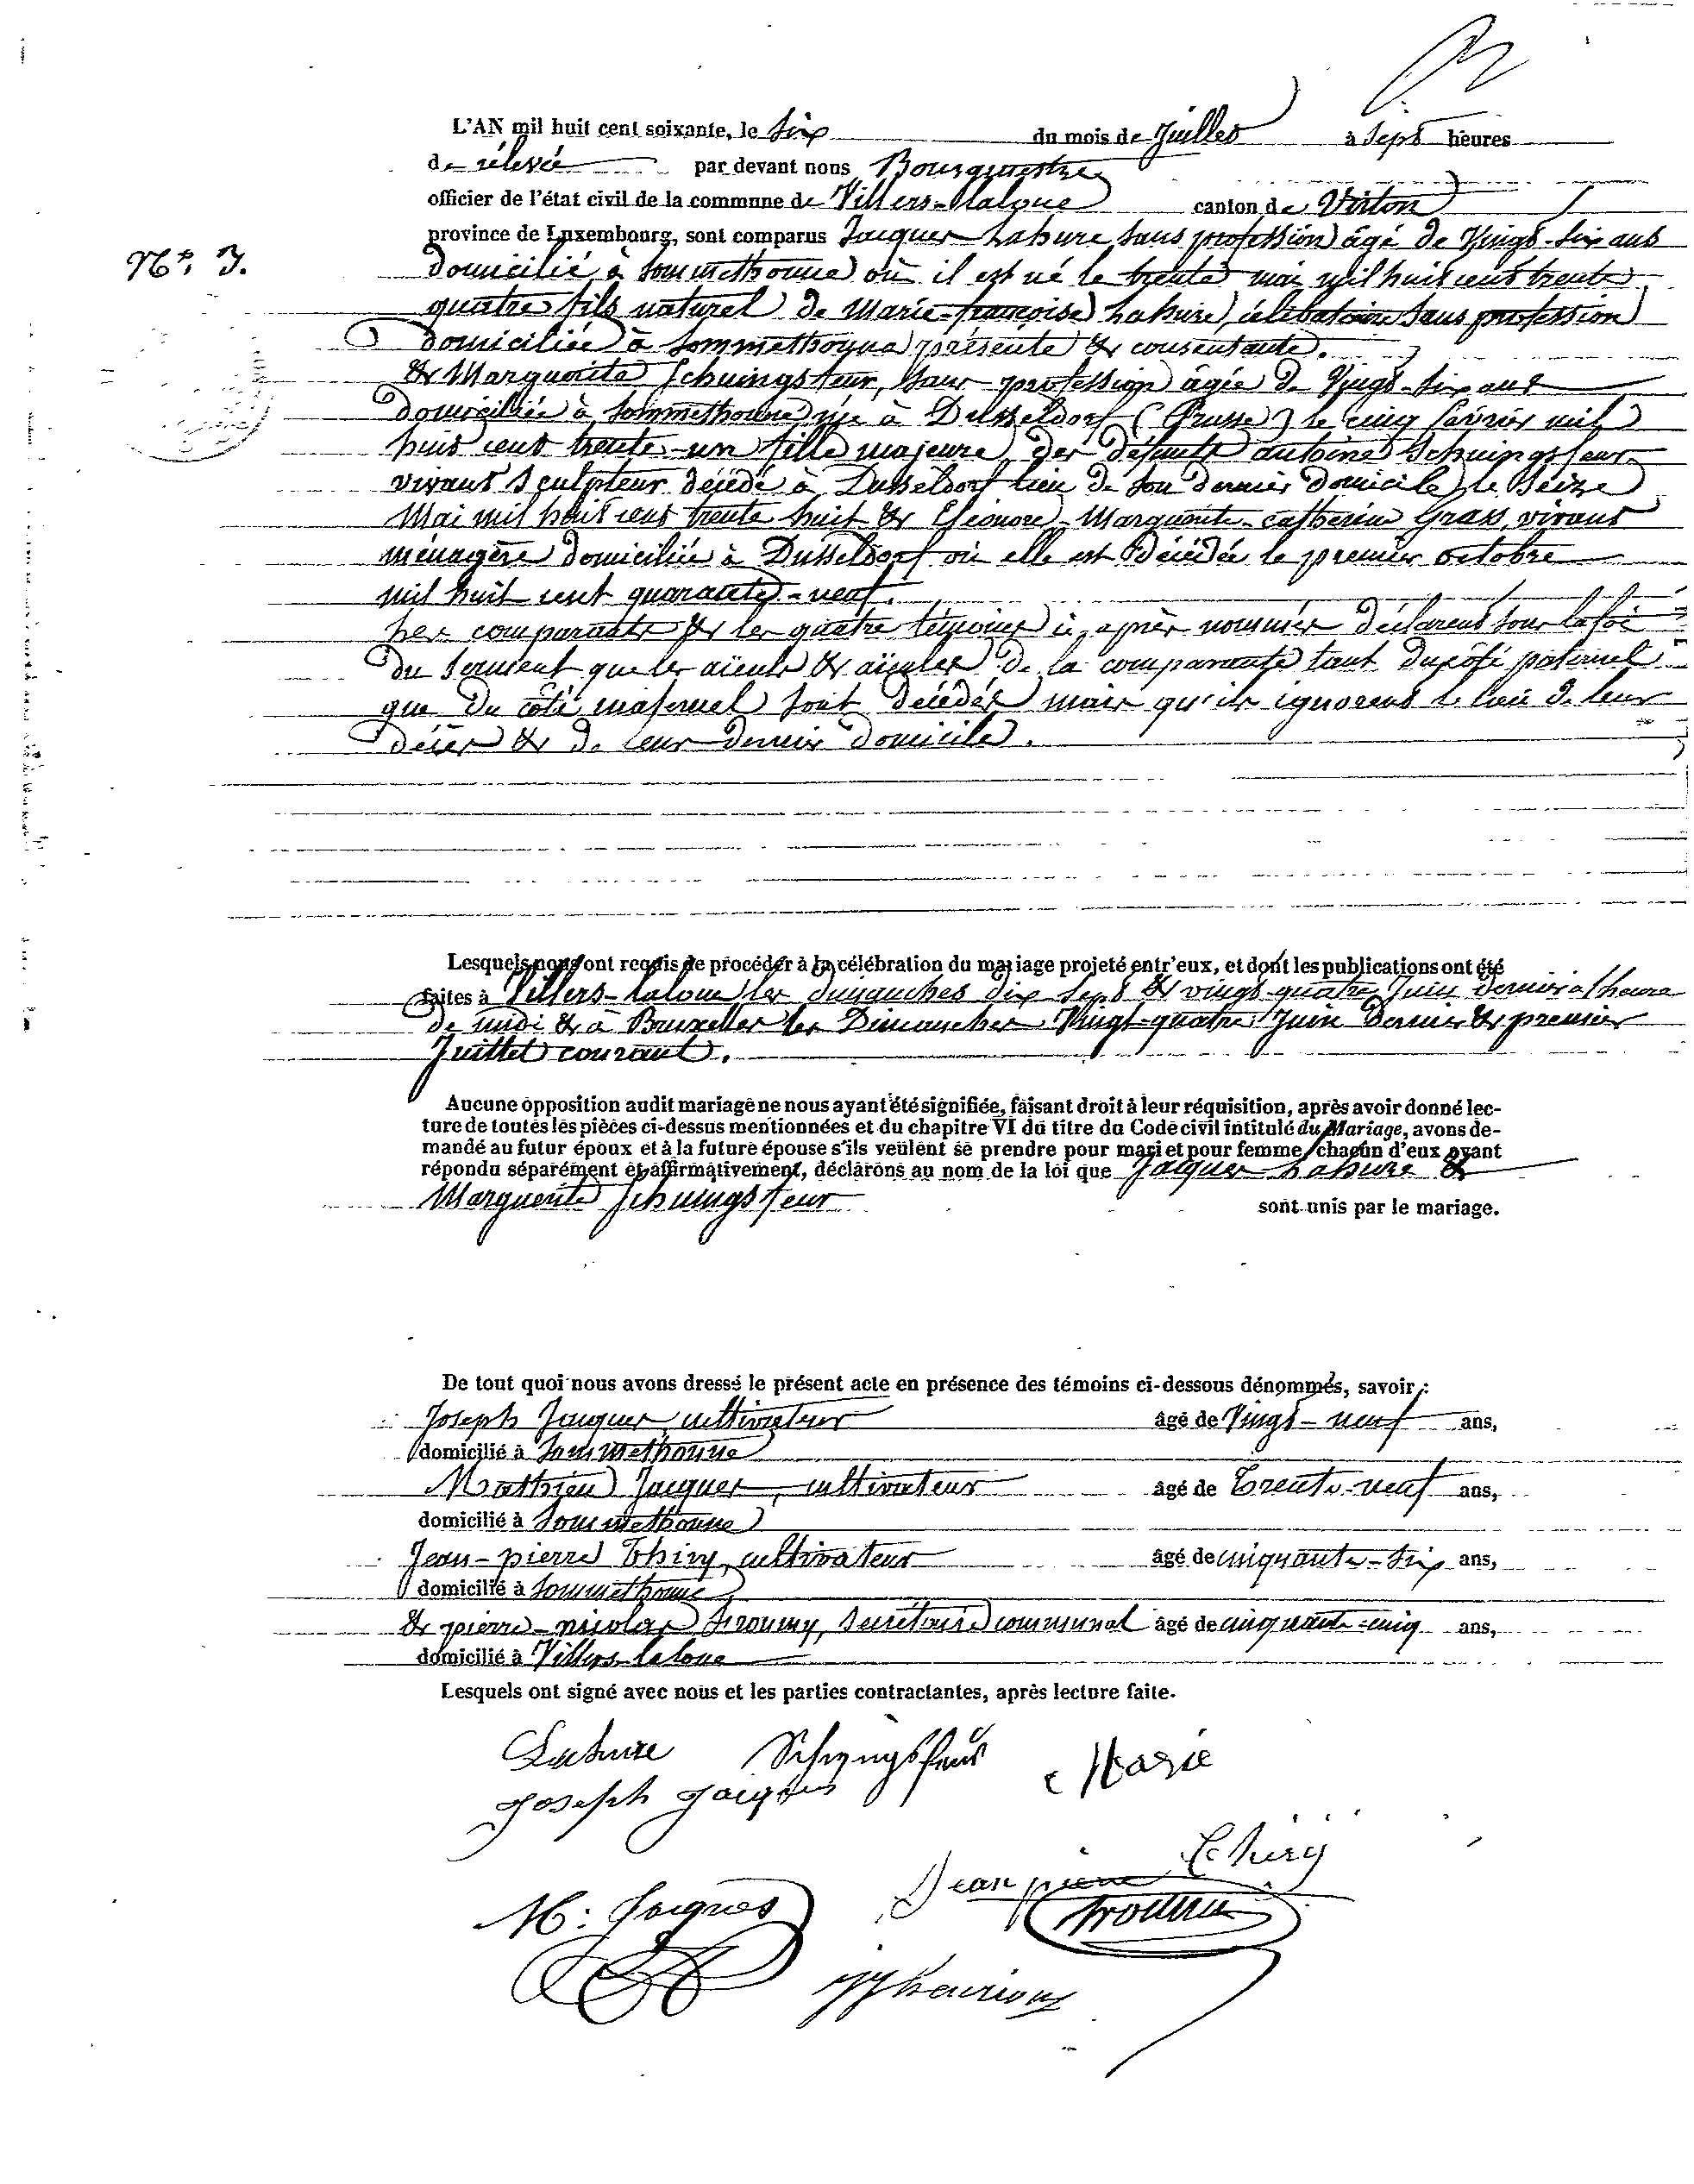 L'AN mil huit cent soixante, le six du mois de Juillet à sept heures
de rélevée par devant nous Bourgmestre
officier de l'état civil de la commune de Villers-Laloue canton de Virton
N°. 3.
province de Luxembourg, sont comparus Jacques Lahure sans profession âgé de vingt-six ans
domicilié à Sommethonne où il est né le trente mai mil huit cent trente
quatre fils naturel de Marie-françoise Lahure, célibataire sans profession
domiciliée à Sommethonne présente & consentante.
& Marguerite Schuingsfeur, sans profession âgée de vingt-six ans
domiciliée à Sommethonne née à Dusseldorf (Prusse) le cinq février mil
huit cent trente-un fille majeure des défunts antoine Schuingsfeur
vivant sculpteur décédé à Dusseldorf lieu de son dernier domicile le seize
Mai mil huit cent trente huit & Eléonore-Marguerite-catherine Grass, vivant
ménagère domiciliée à Dusseldorf où elle est décédée le premier octobre
mil huit cent quarante-neuf.
Les comparants & les quatre témoins ci-après nommés déclarent sous la foi
du serment que les aïeuls & aïeules de la comparante tant du côté paternel
que du côté maternel sont décédés mais qu'ils ignorent le lieu de leur
décès & de leur dernier domicile.
Lesquels nous ont requis de procéder à la célébration du mariage projeté entr'eux, et dont les publications ont été
faites à Villers-laloue les dimanches dix sept & vingt quatre Juin dernier à l'heure
de midi & à Bruxelles les Dimanches vingt-quatre Juin dernier & premier
Juillet courant.
Aucune opposition audit mariage ne nous ayant été signifiée, faisant droit à leur réquisition, après avoir donné lec-
ture de toutes les pièces ci-dessus mentionnées et du chapitre VI du titre du Code civil intitulé du Mariage, avons de-
mandé au futur époux et à la future épouse s'ils veulent se prendre pour mari et pour femme, chacun d'eux ayant
répondu séparément et affirmativement, déclarons au nom de la loi que Jacques Lahure &
Marguerite Schuingsfeur sont unis par le mariage.
De tout quoi nous avons dressé le présent acte en présence des témoins ci-dessous dénommés, savoir :
Joseph Jacques, cultivateur âgé de vingt-neuf ans,
domicilié à Sommethonne
Mathieu Jacques, cultivateur âgé de Trente-neuf ans,
domicilié à Sommethonne
Jean-pierre Thiry, cultivateur âgé de cinquante-six ans,
domicilié à Sommethonne
& pierre-nicolas Froumy, secrétaire communal âgé de cinquante-cinq ans,
domicilié à Villers-laloue
Lesquels ont signé avec nous et les parties contractantes, après lecture faite.
Lahure Schuingsfeur Marie
Joseph Jacques
Jean pierre Thiry
M: Jacques